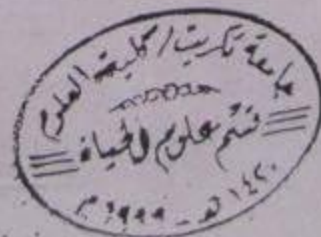 جامعة تكريت / كلية العلوم
قسم علوم الحياة
١٤٢٠ هـ - ١٩٩٩ م